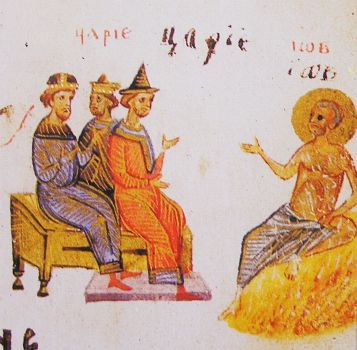 царіе царіе іов
іѡв